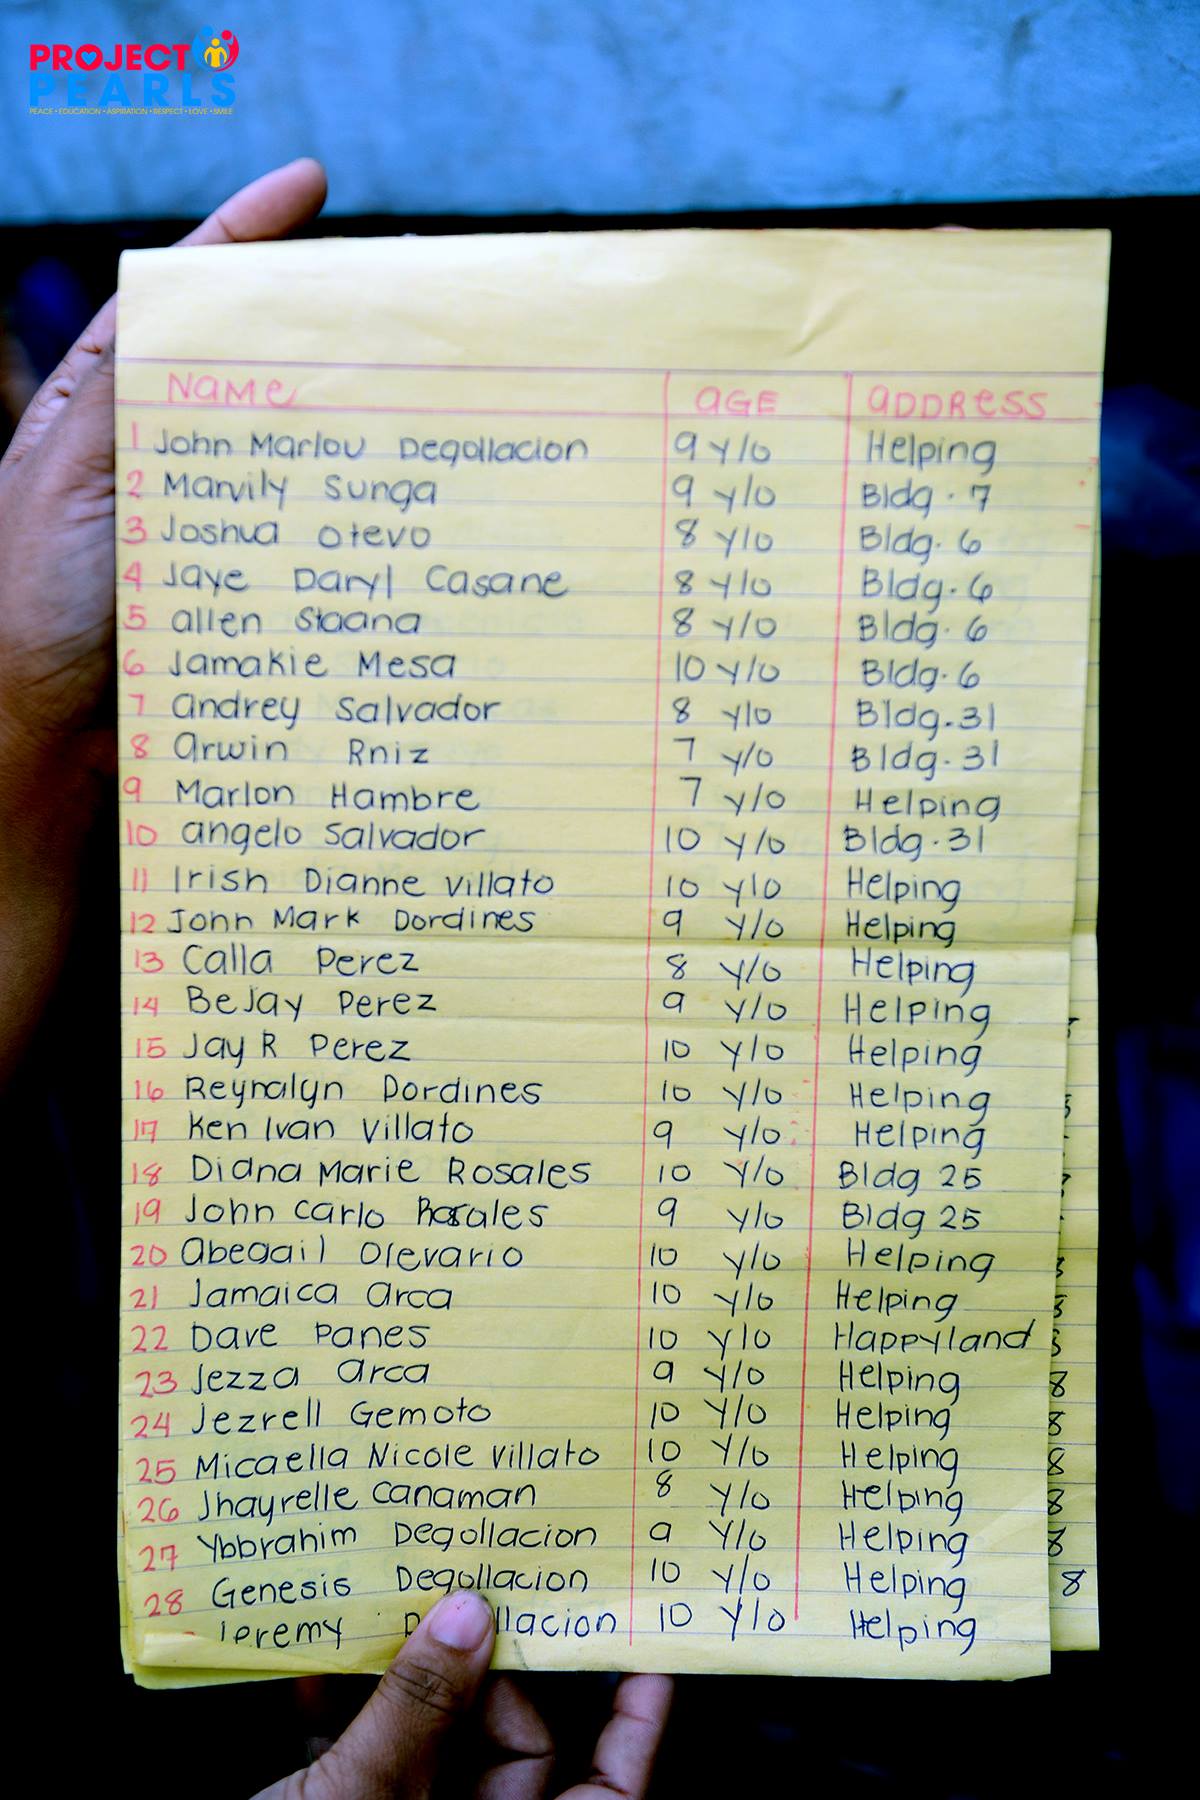 PROJECT
PEARLS
PEACE • EDUCATION • ASPIRATION • RESPECT • LOVE • SMILE
Name AGE ADDRESS
1 John Marlou Degollacion 9 y/o Helping
2 Marvily Sunga 9 y/o Bldg. 7
3 Joshua Otevo 8 y/o Bldg. 6
4 Jaye Daryl Casane 8 y/o Bldg. 6
5 allen Staana 8 y/o Bldg. 6
6 Jamakie Mesa 10 y/o Bldg. 6
7 andrey Salvador 8 y/o Bldg. 31
8 arwin Rniz 7 y/o Bldg. 31
9 Marlon Hambre 7 y/o Helping
10 angelo Salvador 10 y/o Bldg. 31
11 Irish Dianne Villato 10 y/o Helping
12 John Mark Dordines 9 y/o Helping
13 Calla Perez 8 y/o Helping
14 BeJay Perez 9 y/o Helping
15 Jay R Perez 10 y/o Helping
16 Reynalyn Dordines 10 y/o Helping
17 Ken Ivan Villato 9 y/o Helping
18 Diana Marie Rosales 10 y/o Bldg 25
19 John Carlo Rosales 9 y/o Bldg 25
20 abegail Olevario 10 y/o Helping
21 Jamaica arca 10 y/o Helping
22 Dave Panes 10 y/o Happyland
23 Jezza arca 9 y/o Helping 8
24 Jezrell Gemoto 10 y/o Helping 8
25 Micaella Nicole Villato 10 y/o Helping 8
26 Jhayrelle Canaman 8 y/o Helping 8
27 Ybbrahim Degollacion 9 y/o Helping 8
28 Genesis Degollacion 10 y/o Helping 8
Jeremy D llacion 10 y/o Helping